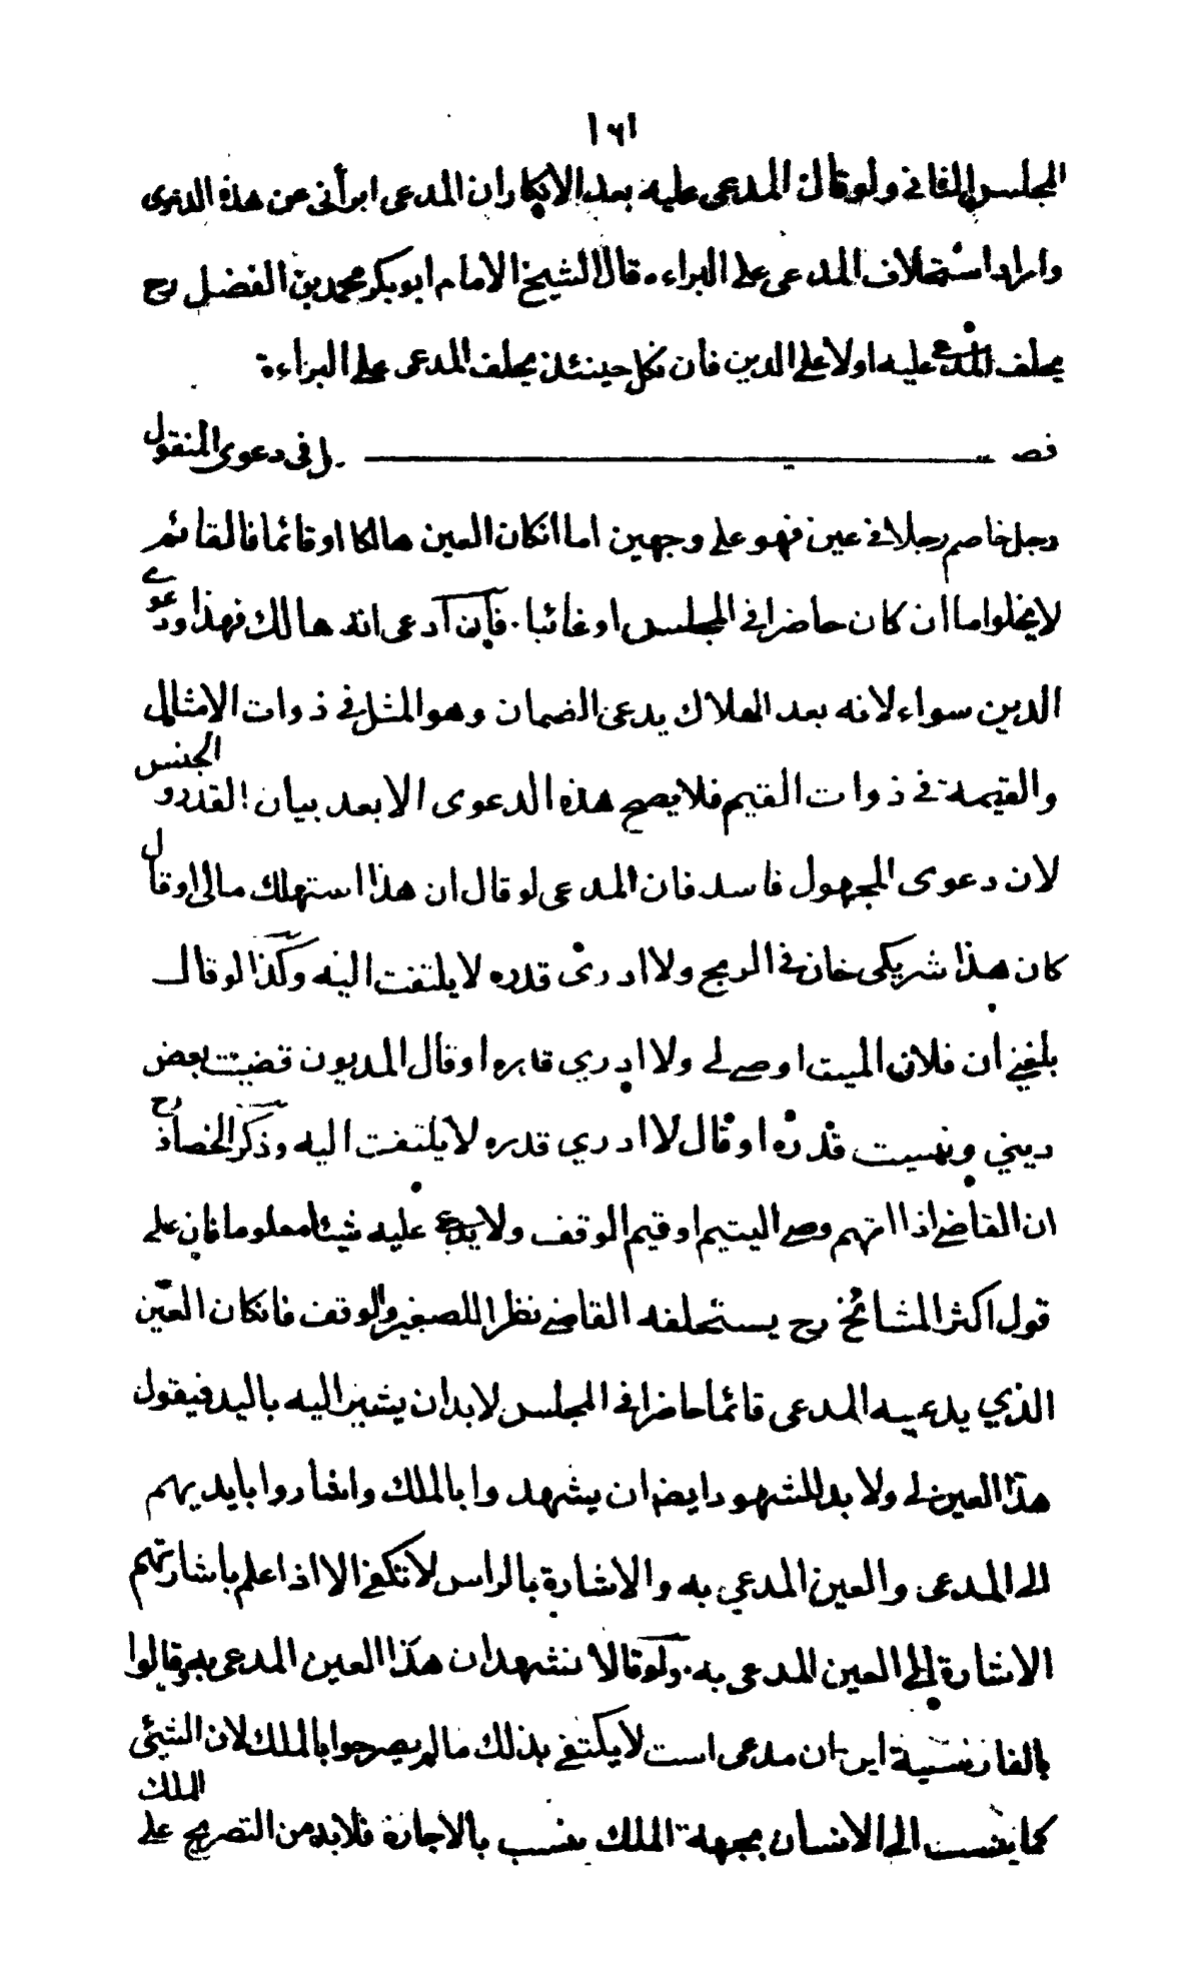 ١٦١
المجلس الثاني ولو قال المدعى عليه بعد الانكار ان المدعى ابرأني عن هذه الدعوى
واراد استحلاف المدعى على البراءة قال الشيخ الامام ابو بكر محمد بن الفضل رح
يحلف المدعى عليه اولا على الدين فان نكل حينئذ يحلف المدعى على البراءة
فصـــــــــــــــل في دعوى المنقول
رجل خاصم رجلا في عين فهو على وجهين اما انكان العين هالكا او قائما فالقائم
لا يخلوا ما ان كان حاضرا في المجلس او غائبا . فان ادعى انه هالك فهذا ودعوى
الدين سواء لانه بعد الهلاك يدعى الضمان وهو المثل في ذوات الامثال
والقيمة في ذوات القيم فلا يصح هذه الدعوى الا بعد بيان القدر و الجنس
لان دعوى المجهول فاسد فان المدعى لو قال ان هذا استهلك مالى او قال
كان هذا شريكى خان في الربح ولا ادرى قدره لا يلتفت اليه وكذا لو قال
بلغني ان فلان الميت اوصى لى ولا ادري قدره او قال المديون قضيت بعض
ديني ونسيت قدره او قال لا ادري قدره لا يلتفت اليه وذكر الخصاف رح
ان القاضى اذا اتهم وصى اليتيم او قيم الوقف ولا يدعى عليه شيئا معلوما فان على
قول اكثر المشائخ رح يستحلفه القاضى نظرا للصغير والوقف فانكان العين
الذي يدعيه المدعى قائما حاضرا في المجلس لا بد ان يشير اليه باليد فيقول
هذا العين لى ولا بد للشهود ايضا ان يشهدوا بالملك واشاروا بايديهم
الى المدعى والعين المدعي به والاشارة بالراس لا تكفى الا اذا علم باشارتهم
الاشارة الى العين المدعى به . ولو قالا نشهد ان هذا العين المدعى به وقالوا
بالفارسية اين ان مدعى است لا يكتفى بذلك ما لم يصرحوا بالملك لان الشئ
كما ينسب الى الانسان بجهة الملك ينسب بالاجارة فلا بد من التصريح على الملك